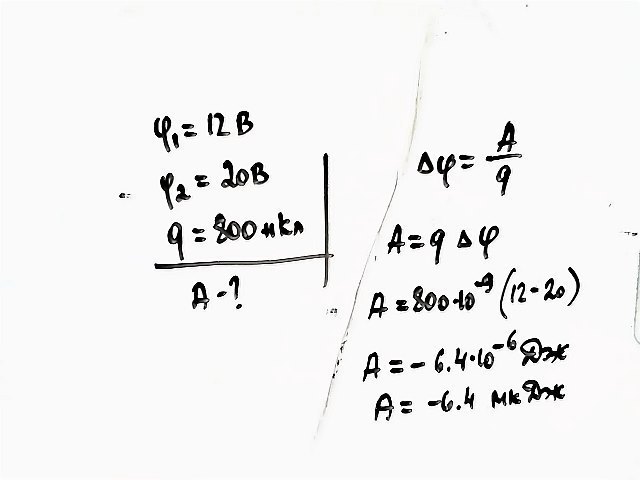 φ₁ = 12 В
φ₂ = 20В
q = 800 нКл
A - ?
Δφ = A/q
A = q Δφ
A = 800·10⁻⁹ (12-20)
A = - 6.4·10⁻⁶ Дж
A = -6.4 мкДж